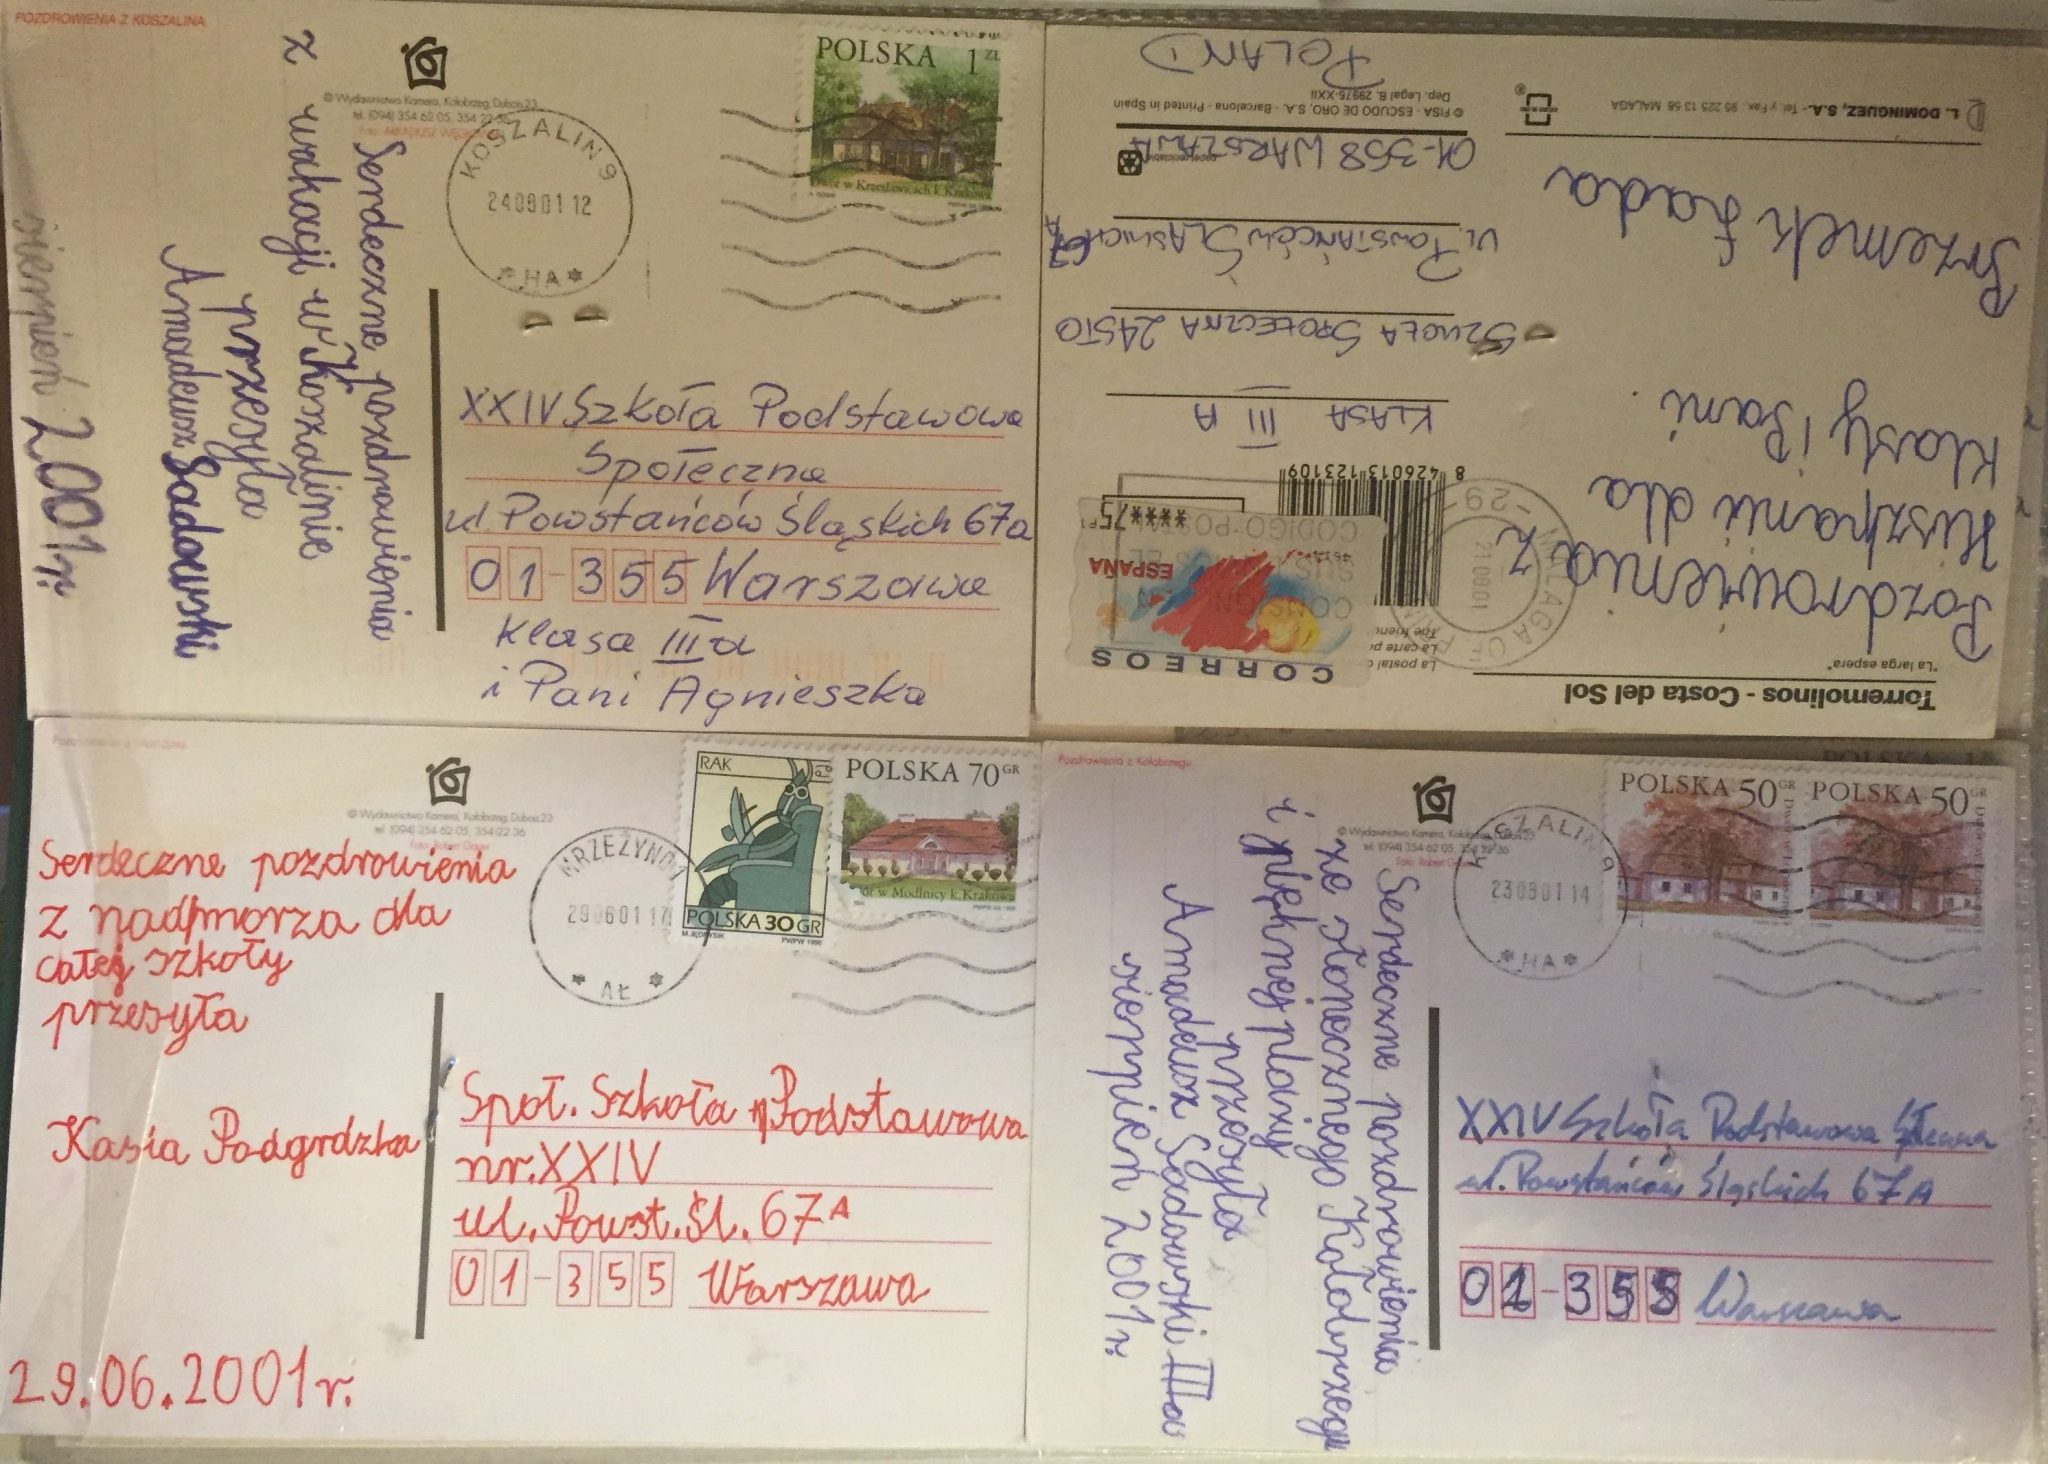 POZDROWIENIA Z KOSZALINA
© Wydawnictwo Kamera, Kołobrzeg, Dubois 23
tel. (094) 354 62 05, 354 22 36
KOSZALIN 9
240801 12
* HA *
POLSKA 1 ZŁ
Dwór w Krzesławicach k. Krakowa
Serdeczne pozdrowienia
z wakacji w Koszalinie
przesyła
Amadeusz Sadowski
sierpień 2001 r.
XXIV Szkoła Podstawowa
Społeczna
ul. Powstańców Śląskich 67a
01-355 Warszawa
Klasa III a
i Pani Agnieszka
Torremolinos - Costa del Sol
"La larga espera"
Pozdrowienia z
Hiszpanii dla
Klasy i Pani.
Przemek Łada
L. DOMINGUEZ, S.A. - Tel y Fax. 95 225 13 58 MALAGA
CORREOS
ESPAÑA
***75 PT
8 426013 123109
210801
KLASA III A
SZKOŁA SPOŁECZNA 24STO
UL. POWSTAŃCÓW ŚLĄSKICH 67A
01-358 WARSZAWA
© FISA - ESCUDO DE ORO, S.A. - Barcelona - Printed in Spain
Dep. Legal B. 29975-XXII
POLAND
© Wydawnictwo Kamera, Kołobrzeg, Dubois 23
tel. (094) 354 62 05, 354 22 36
Foto: Robert Gauer
MRZEŻYNO 1
290601 17
* AŁ *
RAK
POLSKA 30 GR
M. JĘDRYSIK PWPW 1996
POLSKA 70 GR
Dwór w Modlnicy k. Krakowa
Serdeczne pozdrowienia
z nadmorza dla
całej szkoły
przesyła
Kasia Podgrdzka
29.06.2001 r.
Społ. Szkoła Podstawowa
nr. XXIV
ul. Powst. Śl. 67A
01-355 Warszawa
Pozdrowienia z Kołobrzegu
© Wydawnictwo Kamera, Kołobrzeg, Dubois 23
tel. (094) 354 62 05, 354 22 36
Foto: Robert Gauer
KOSZALIN 9
230801 14
* HA *
POLSKA 50 GR
POLSKA 50 GR
Serdeczne pozdrowienia
ze słonecznego Kołobrzegu
i pięknej plaży
przesyła
Amadeusz Sadowski III a
sierpień 2001 r.
XXIV Szkoła Podstawowa
ul. Powstańców Śląskich 67A
01-355 Warszawa